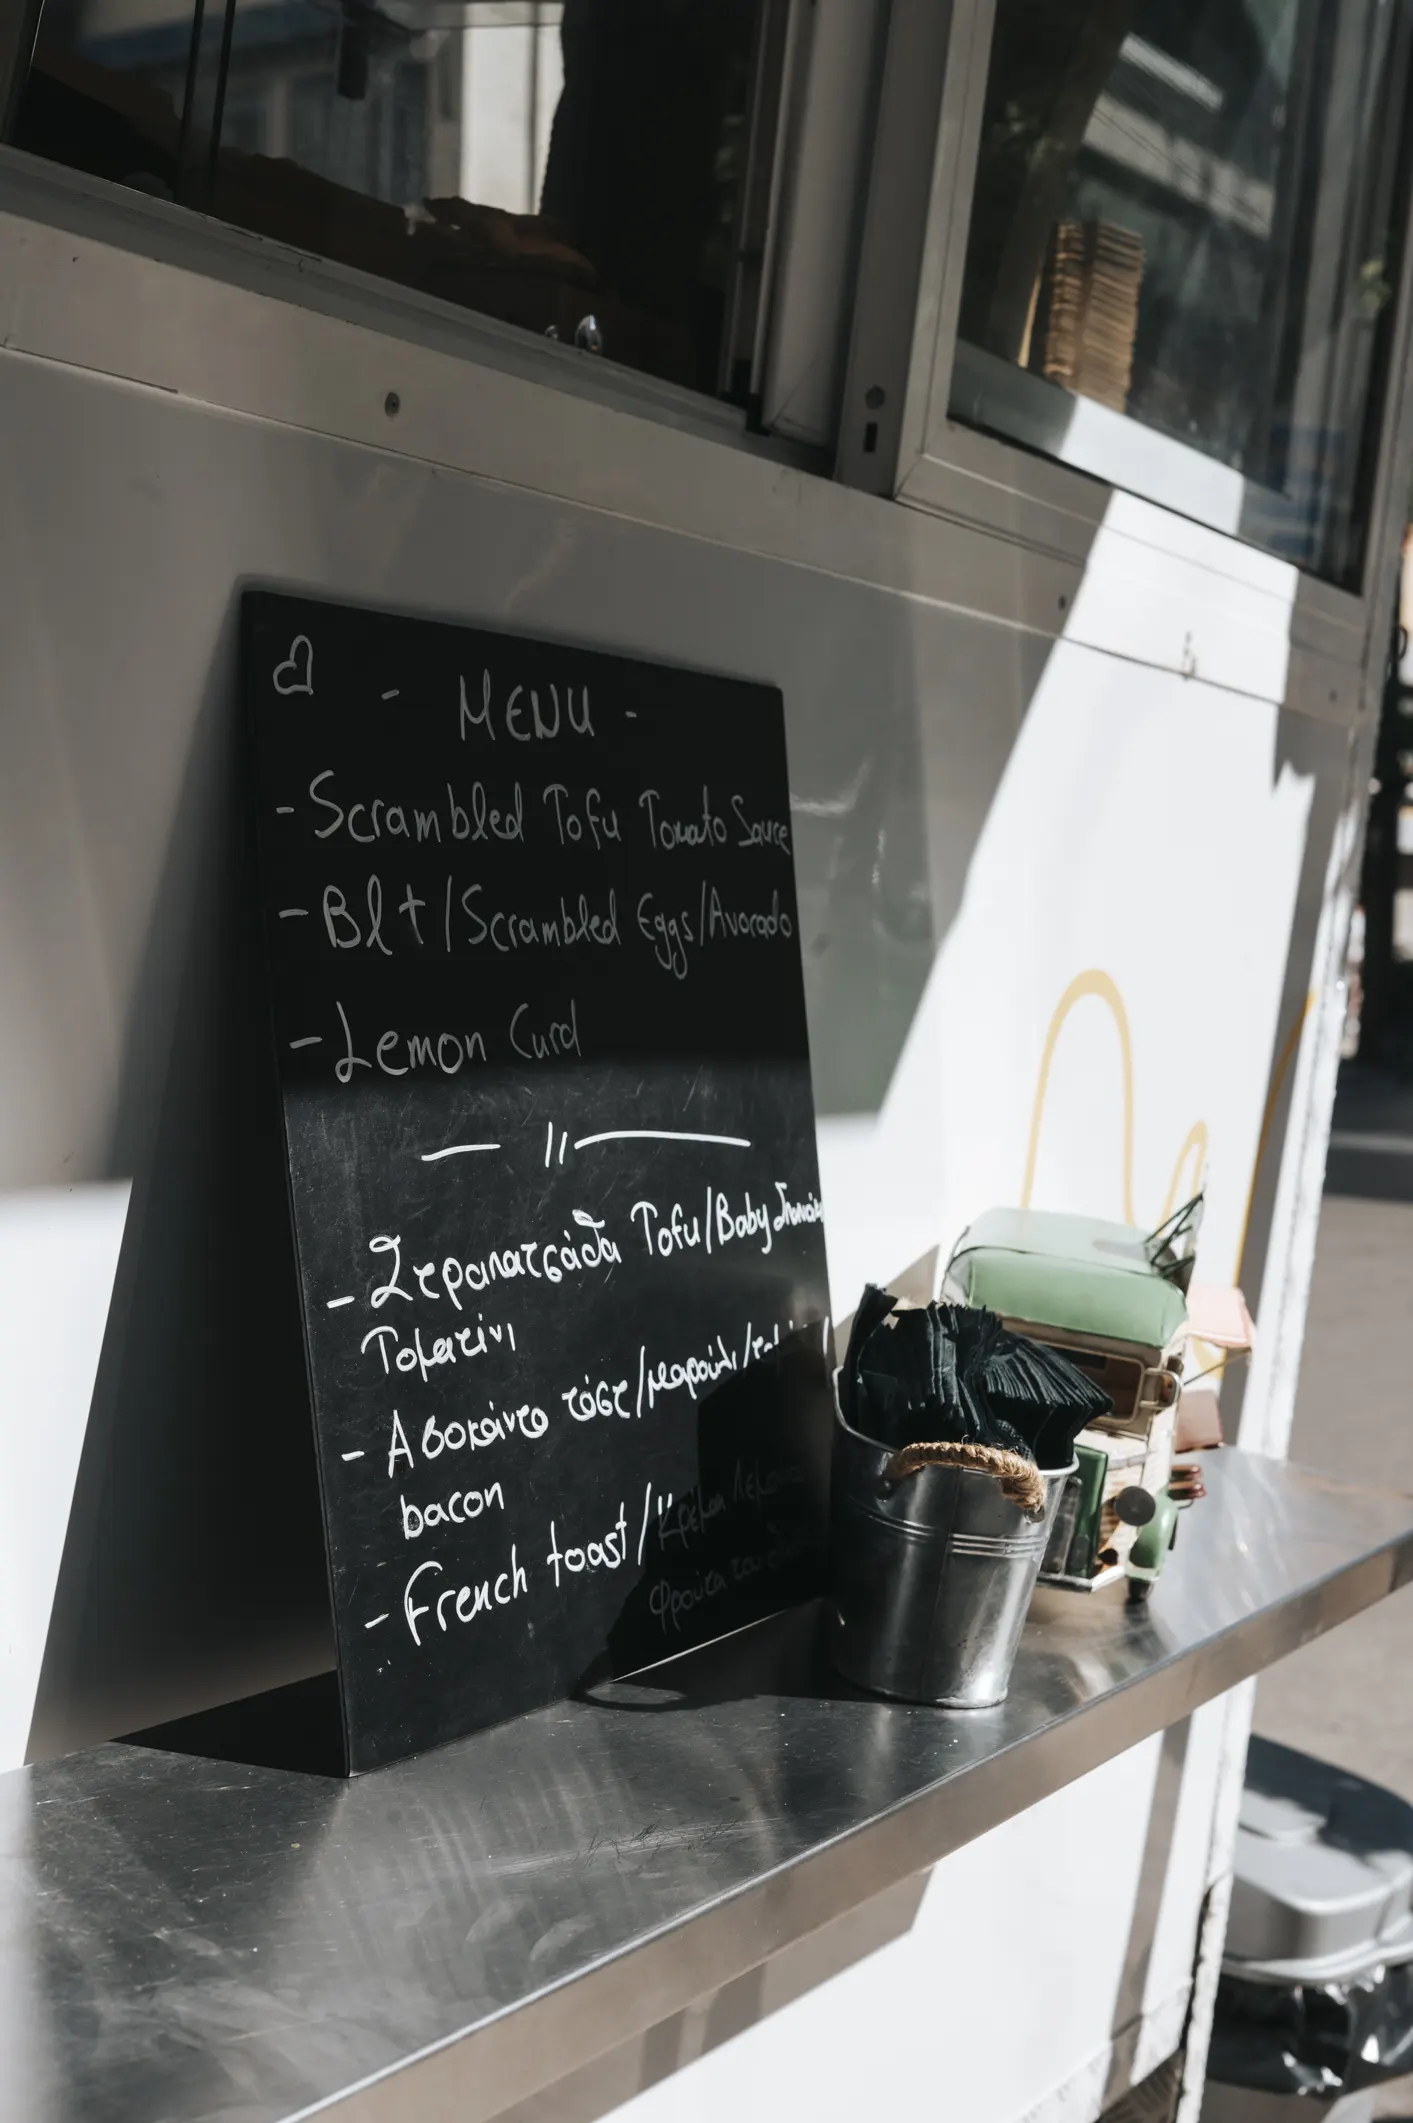 - MENU -
- Scrambled Tofu Tomato Sauce
- Blt/Scrambled Eggs/Avocado
- Lemon Curd
- Στραπατσάδα Tofu/Baby
Τοματίνι
- Αβοκάντο τόστ/μαρούλι/
bacon
- French toast/Κρέμα λεμόνι
φρούτα του